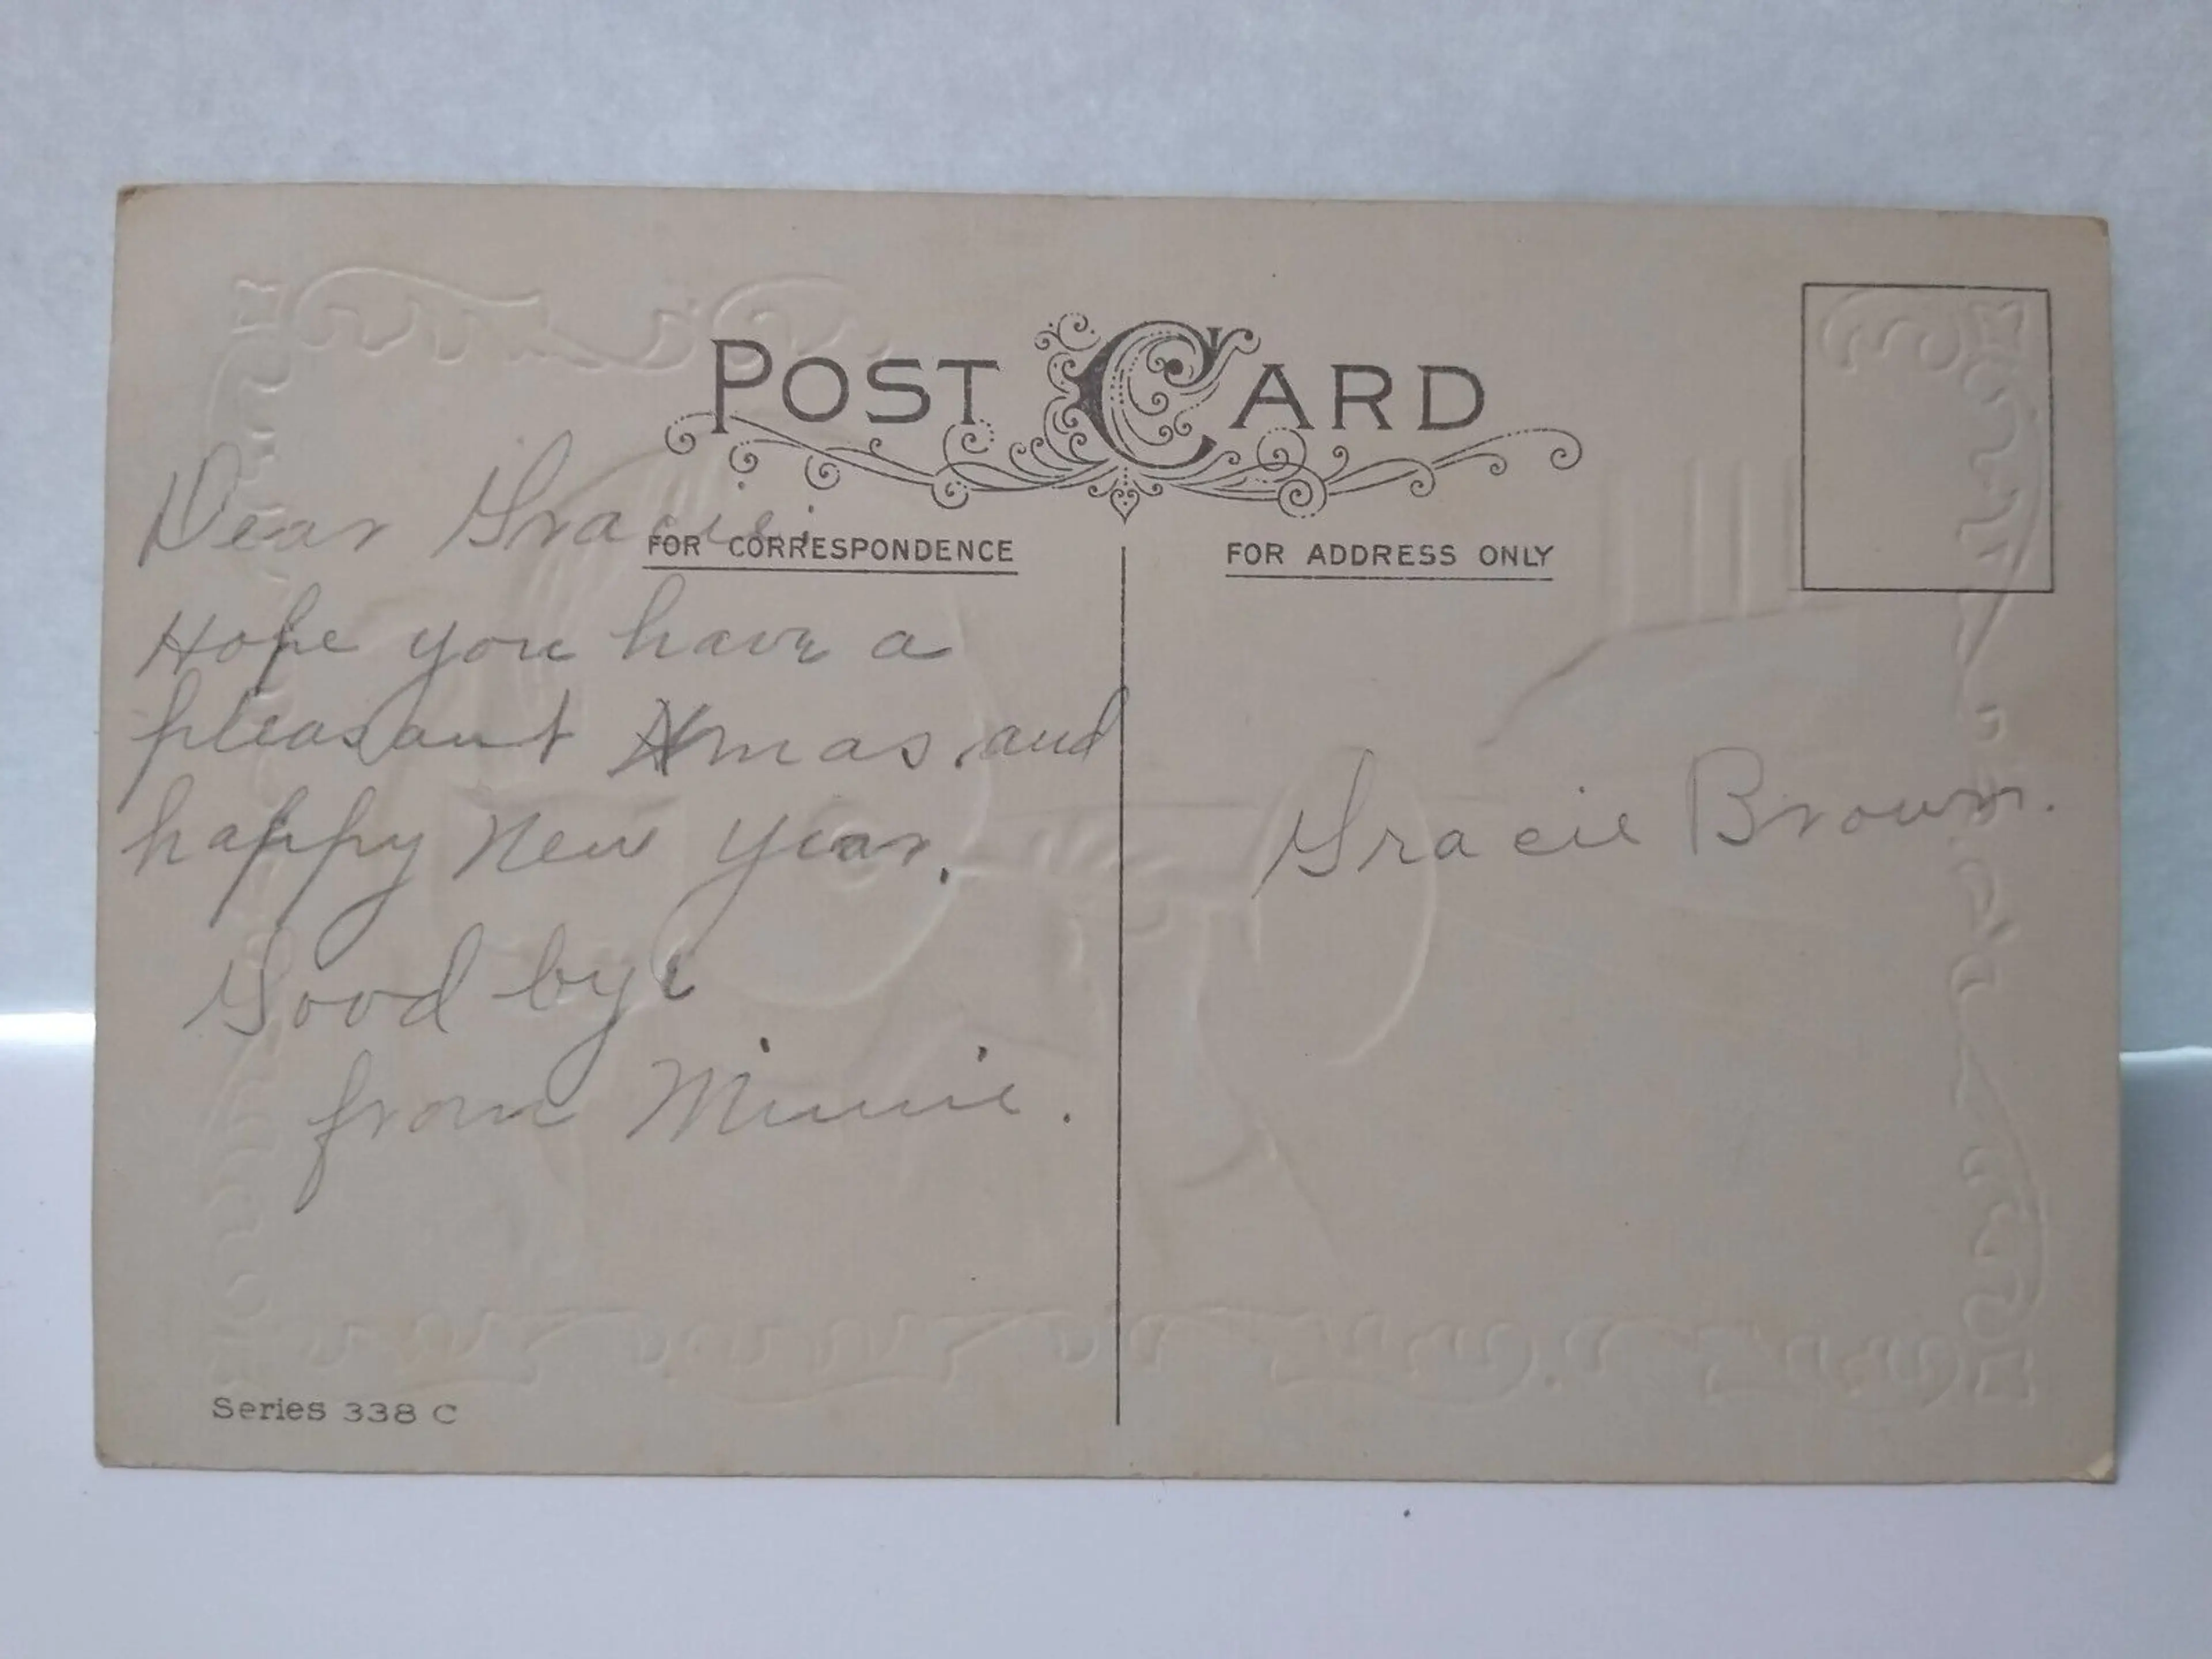 POST CARD
FOR CORRESPONDENCE
FOR ADDRESS ONLY
Dear Gracie:
Hope you have a
pleasant Xmas and
happy New Year.
Good bye
from Minnie.
Gracie Brown.
Series 338 C